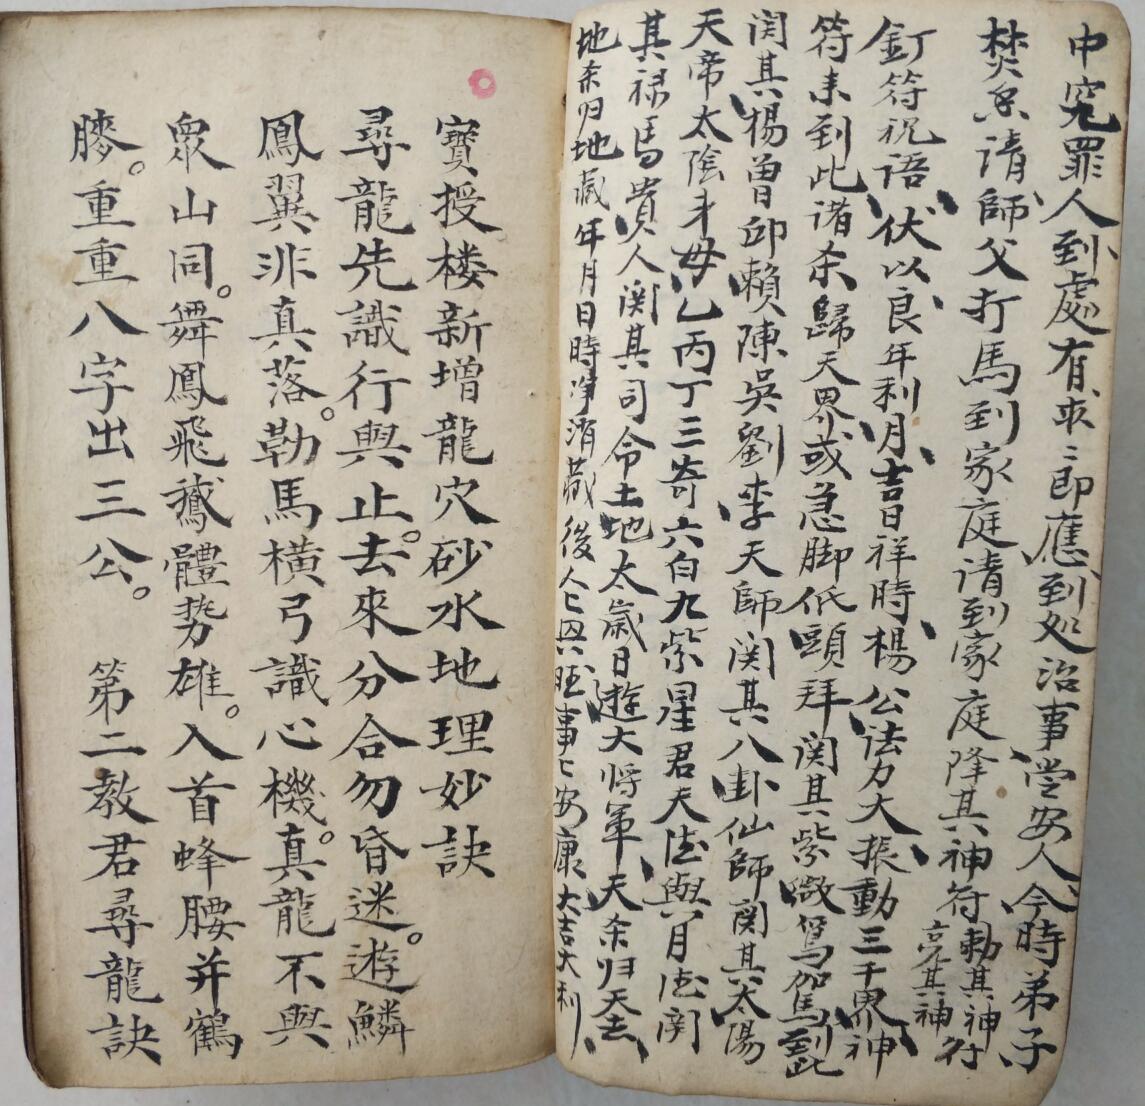 中冤罪人到處有求〻即應到处治事堂安人今時弟子
焚香請師父打馬到家庭请到家庭降其神符勅其神符
亮其神
釘符祝语伏以良年利月吉日祥時楊公法力大振動三千界神
符末到此诸杀歸天界或急脚低頭拜関其紫微鸞駕到此
関其楊曾邱賴陳吳劉李天師関其八卦仙師関其太陽
天帝太陰才母乙丙丁三奇六白九紫星君天德與月德関
其禄馬貴人関其司命土地太歲日遊大将軍天杀归天去
地杀归地藏年月日時净消藏後人亡因旺事亡安康大吉大利
寶授楼新增龍穴砂水地理妙訣
尋龍先識行與止。去來分合勿昏迷。遊鱗
鳳翼非真落。勒馬橫弓識心機。真龍不與
衆山同。舞鳳飛鵝體势雄。入首蜂腰并鶴
膝。重重八字出三公。 第二教君尋龍訣